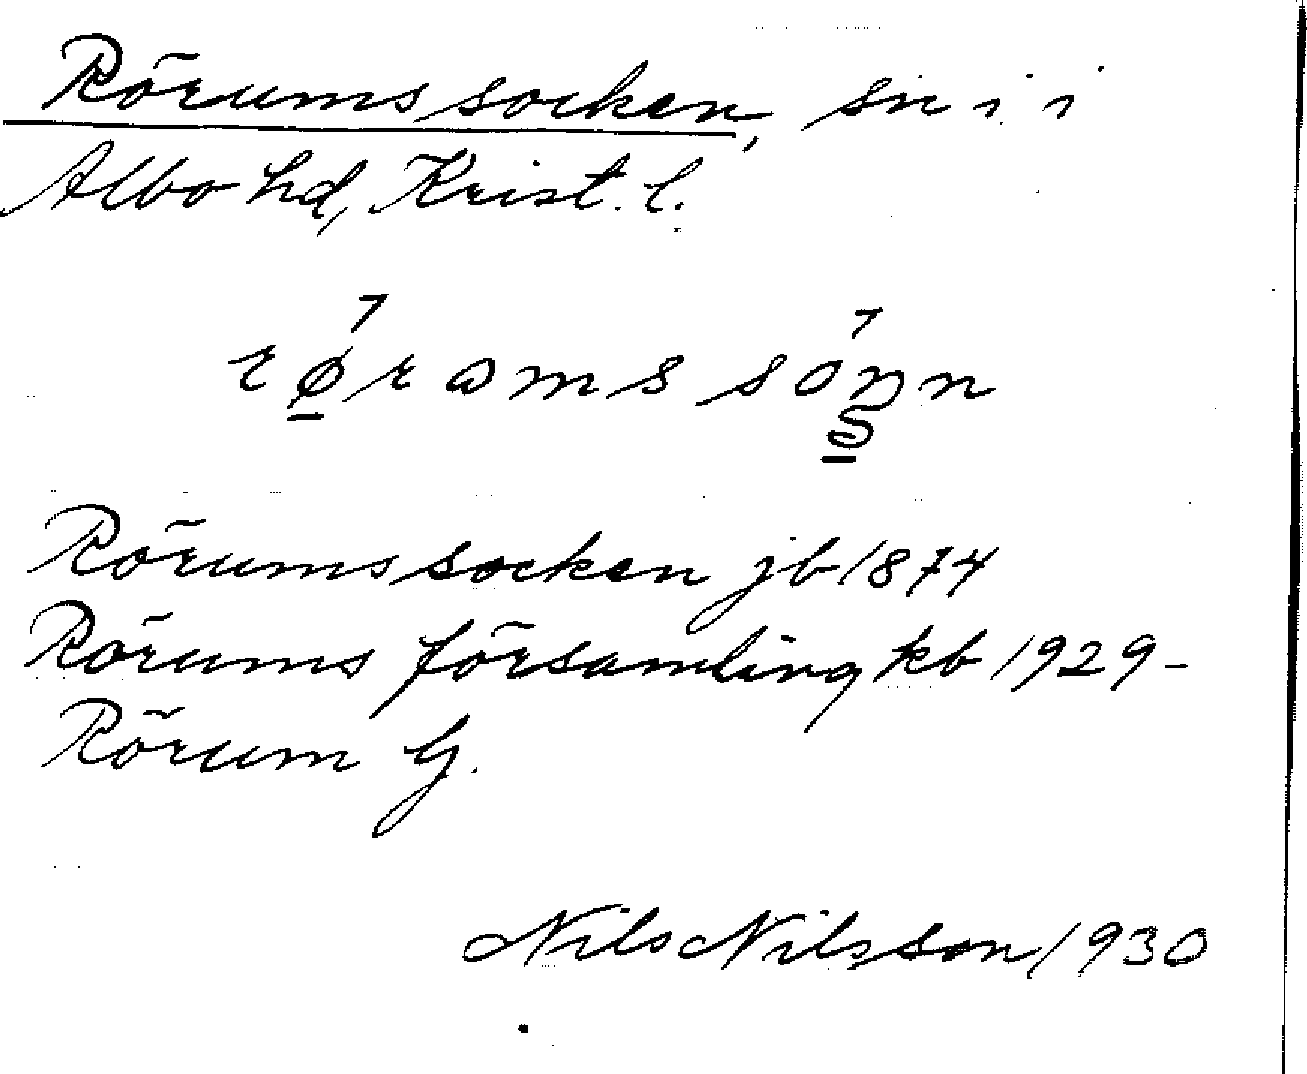 Rörumssocken, sn i i
Albo hd, Krist. l.
Rörumssocken jb 1874
Rörums församling kb 1929–
Rörum G.
Nils Nilsson 1930